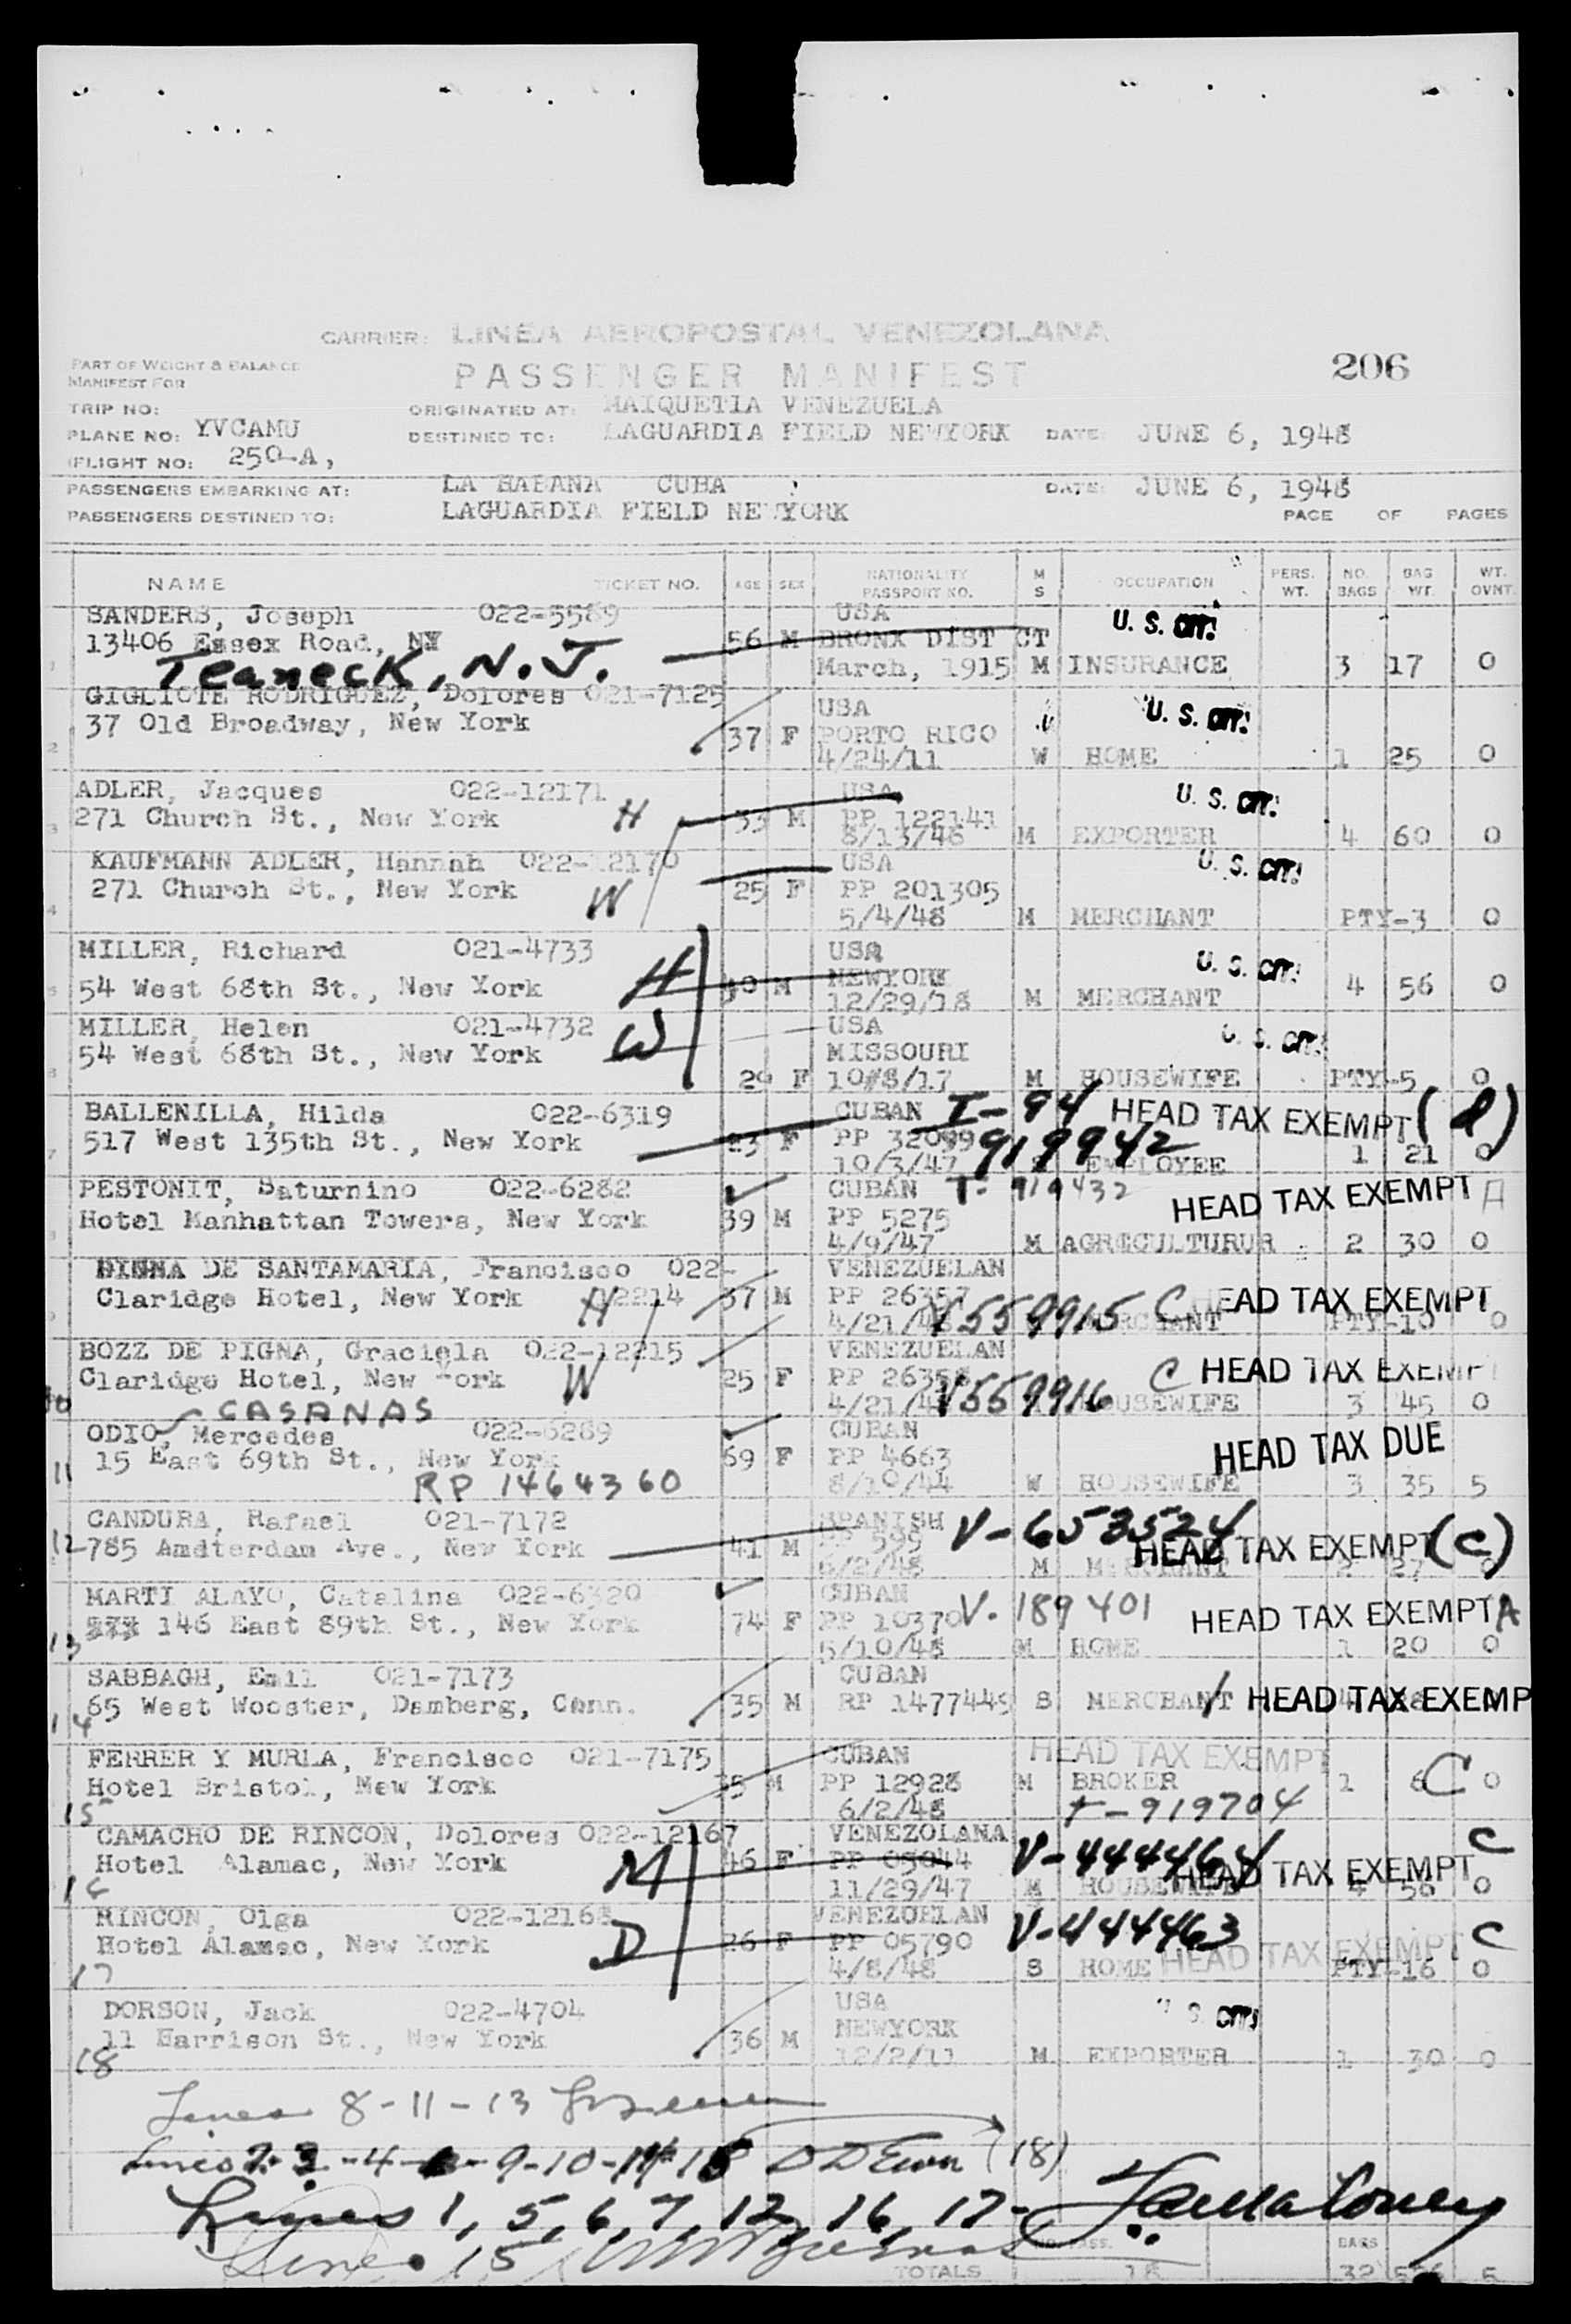 CARRIER: LINEA AEROPOSTAL VENEZOLANA
PART OF WEIGHT & BALANCE
MANIFEST FOR
PASSENGER MANIFEST
206
TRIP NO:
ORIGINATED AT: MAIQUETIA VENEZUELA
PLANE NO: YVCAMU
DESTINED TO: LAGUARDIA FIELD NEWYORK DATE: JUNE 6, 1948
FLIGHT NO: 250-A,
PASSENGERS EMBARKING AT: LA HABANA CUBA DATE: JUNE 6, 1948
PASSENGERS DESTINED TO: LAGUARDIA FIELD NEWYORK
PAGE OF PAGES
NAME TICKET NO. AGE SEX NATIONALITY PASSPORT NO. M S OCCUPATION PERS. WT. NO. BAGS BAG WT. WT. OVNT.
SANDERS, Joseph 022-5589 USA U. S. CIT!
13406 Essex Road, NY 56 M BRONX DIST CT
Teaneck, N.J. March, 1915 M INSURANCE 3 17 0
GIGLIOTE RODRIGUEZ, Dolores 021-7125 USA U. S. CIT!
37 Old Broadway, New York 37 F PORTO RICO
2 4/24/11 W HOME 1 25 0
ADLER, Jacques 022-12171 USA U. S. CIT!
3 271 Church St., New York H 33 M PP 122141
8/13/46 M EXPORTER 4 60 0
KAUFMANN ADLER, Hannah 022-12170 USA U. S. CIT!
271 Church St., New York W 25 F PP 201305
4 5/4/48 M MERCHANT PTY-3 0
MILLER, Richard 021-4733 USA U. S. CIT!
54 West 68th St., New York H M NEWYORK
12/29/18 M MERCHANT 4 56 0
MILLER, Helen 021-4732 USA U. S. CIT!
54 West 68th St., New York W MISSOURI
29 F 10/8/17 M HOUSEWIFE PTY-5 0
BALLENILLA, Hilda 022-6319 CUBAN I-94 HEAD TAX EXEMPT (d)
7 517 West 135th St., New York 23 F PP 32099 919942
10/3/47 EMPLOYEE 1 21 0
PESTONIT, Saturnino 022-6282 CUBAN T-919432 HEAD TAX EXEMPT A
Hotel Manhattan Towers, New York 39 M PP 5275
4/9/47 M AGRICULTURUR 2 30 0
DE SANTAMARIA, Francisco 022- VENEZUELAN
Claridge Hotel, New York H 12214 37 M PP 26357 V559915 C HEAD TAX EXEMPT
4/21/48 MERCHANT PTY-10 0
BOZZ DE PIGNA, Graciela 022-12215 VENEZUELAN C HEAD TAX EXEMPT
Claridge Hotel, New York W 25 F PP 26358 V559916
10 4/21/48 HOUSEWIFE 3 45 0
CASANAS
ODIO, Mercedes 022-6289 CUBAN HEAD TAX DUE
15 East 69th St., New York 69 F PP 4663
11 RP 1464360 8/10/44 W HOUSEWIFE 3 35 5
CANDURA, Rafael 021-7172 SPANISH V-653524
12 785 Amdterdam Ave., New York 41 M PP 595 HEAD TAX EXEMPT (C)
6/2/48 M MERCHANT 2 27 0
MARTI ALAYO, Catalina 022-6320 CUBAN V. 189401 HEAD TAX EXEMPT A
146 East 89th St., New York 74 F PP 10370
13 5/10/48 M HOME 1 20 0
SABBAGH, Emil 021-7173 CUBAN
65 West Wooster, Damberg, Conn. 35 M RP 1477449 S MERCHANT HEAD TAX EXEMP
14
FERRER Y MURLA, Francisco 021-7175 CUBAN HEAD TAX EXEMPT
Hotel Bristol, New York 35 M PP 12928 M BROKER 1 6 C 0
15 6/2/48 T-919704
CAMACHO DE RINCON, Dolores 022-12167 VENEZOLANA V-444464 C
Hotel Alamac, New York M 46 F PP 05044 HEAD TAX EXEMPT
16 11/29/47 M HOUSEWIFE 4 56 0
RINCON, Olga 022-12168 VENEZUELAN V-444463 C
Hotel Alamac, New York D 26 F PP 05790 HEAD TAX EXEMPT
17 4/8/48 S HOME PTY-16 0
DORSON, Jack 022-4704 USA U. S. CIT!
11 Harrison St., New York 36 M NEWYORK
18 12/2/11 M EXPORTER 1 30 0
Lines 8-11-13
Lines 2-3-4-9-10-14-18 (18)
Lines 1, 5, 6, 7, 12, 16, 17-
Line 15
NO. PASS. BAGS
TOTALS 18 32 5